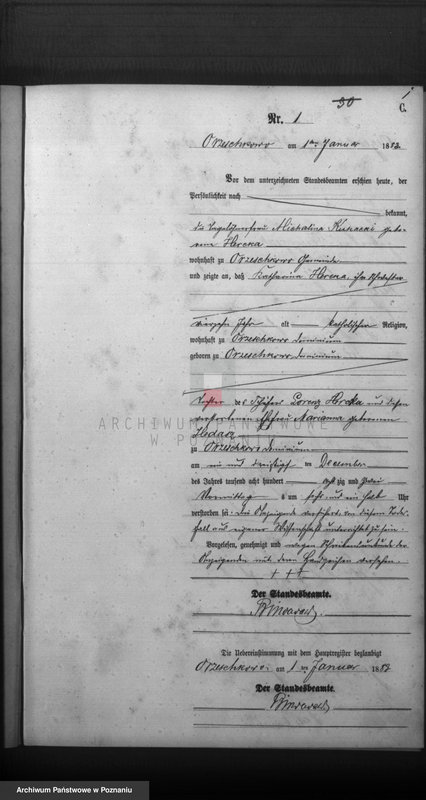 30
1
C.
Nr. 1
Orzeschkowo am 1ten Januar 1883.
Vor dem unterzeichneten Standesbeamten erschien heute, der
Persönlichkeit nach
bekannt,
die Tagelöhnerfrau Michalina gebo-
rene
wohnhaft zu Orzeschkowo Gemeinde
und zeigte an, daß Katharina ihre Schwester
vierzehn Jahr alt katholischer Religion,
wohnhaft zu Orzeschkowo Dominium
geboren zu Orzeschkowo Dominium
Tochter des Schäfers Lorenz und dessen
verstorbenen Ehefrau Marianna geborenen
zu Orzeschkowo Dominium
am ein und dreißigsten December
des Jahres tausend acht hundert achtzig und zwei
Vormittag s um und ein halb Uhr
verstorben sei. Die Anzeigende von diesem Todes-
fall aus eigener Wissenschaft unterrichtet zu sein.
Vorgelesen, genehmigt und wegen Schreibensunkunde der
Anzeigenden mit deren Handzeichen versehen.
+ + +
Der Standesbeamte.
Die Uebereinstimmung mit dem Hauptregister beglaubigt
Orzeschkowo am 1ten Januar 1883
Der Standesbeamte.
ARCHIWUM PAŃSTWOWE
W POZNANIU
Archiwum Państwowe w Poznaniu